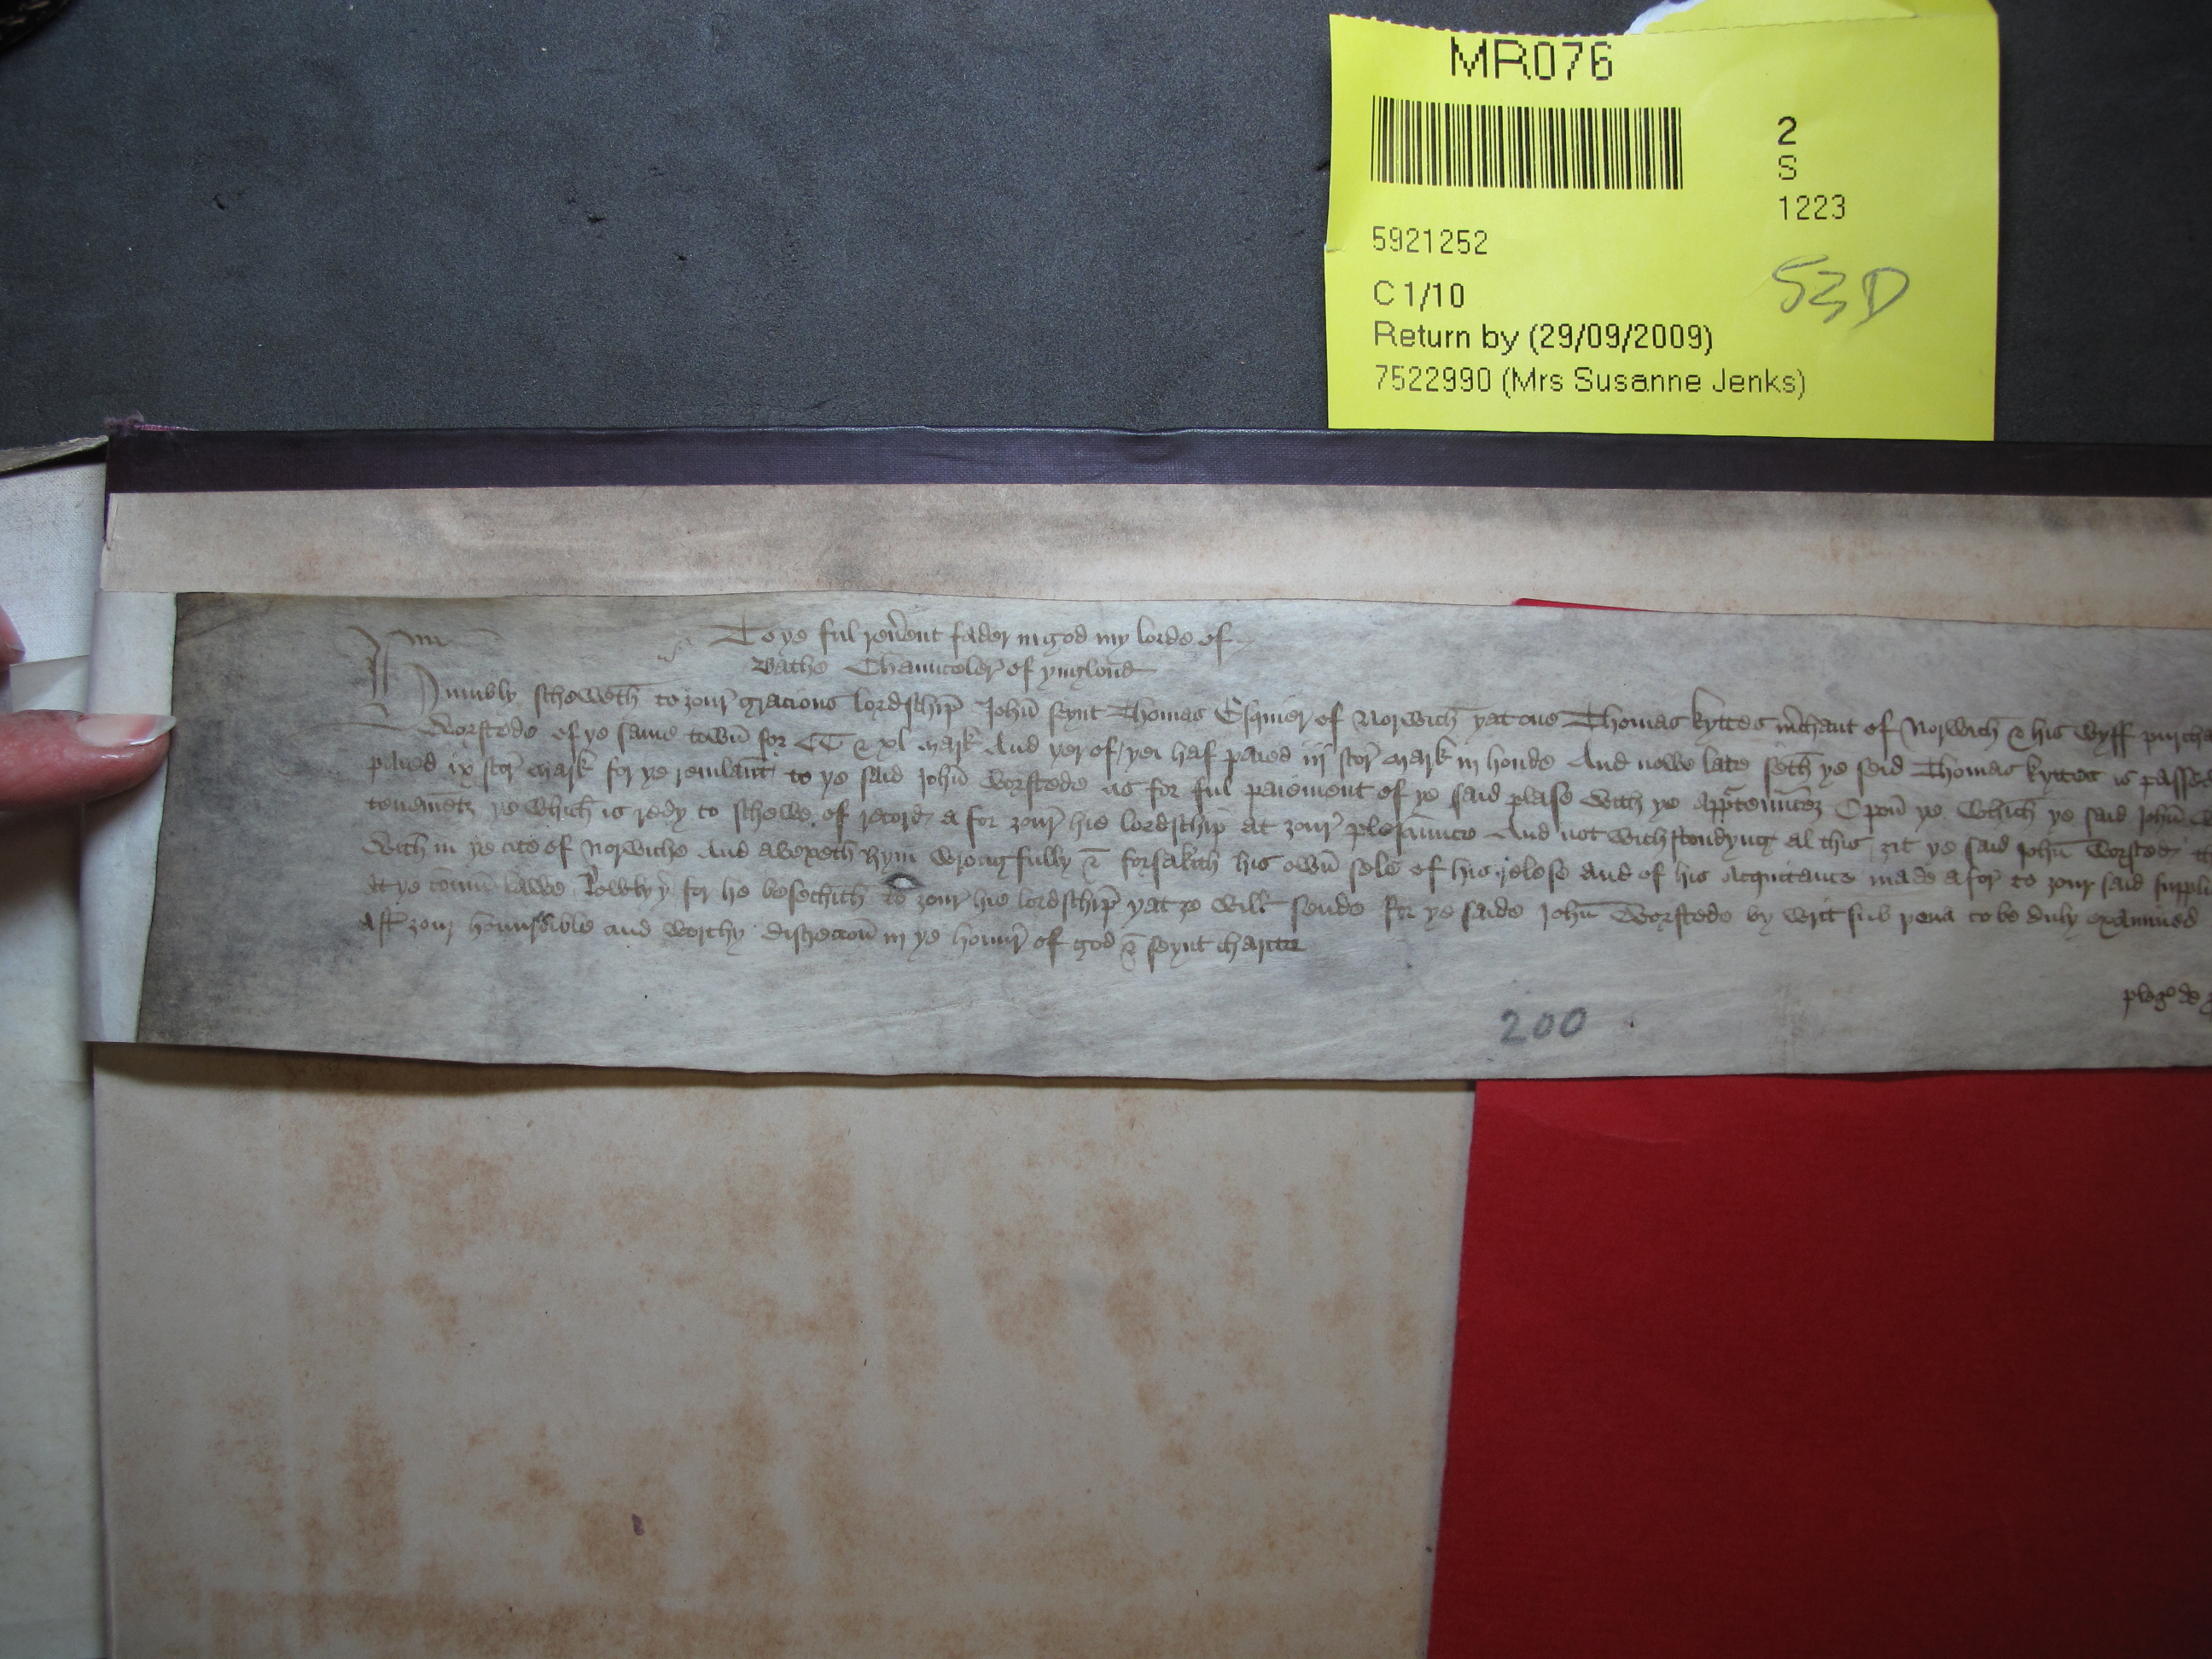 MR076
2
S
1223
5921252
C 1/10
53D
Return by (29/09/2009)
7522990 (Mrs Susanne Jenks)
To ye ful reu'ent fader in god my lorde of
Bathe Chaunceler' of ynglond
Humbly scheweth to zour' gracious lordschip John seynt Thomas Esquier of Norwich yat one Thomas kyttes m'chant of Norwich & his wyff purcha
Worstede of ye same town for CC & xl mark And yer of yei haf paied iij scor mark in honde And nowe late seth ye seid Thomas kyttes is passed
paied ix scor mark for ye remlant to ye said John Worstede as for ful paiement of ye said plase with ye App'tenncez Opon ye which ye said John
tenementz ye which is redy to schewe of record a for zour' hie lordschip at zour' plesaunce And not withstondyng al this zit ye said John Worsted
with in ye cite of Norwiche And a vexeth hym wrongfully & forsakith his own sele of his relese and of his Acquitance made a for to zour said suppli
At ye comun lawe for he besechith to zour' hie lordschip yat ze will sende for ye saide John Worstede by writ sub pena to be duly examined
Aft' zour honurable and worthy discrecion in ye honur' of god & seynt charite
200
pleg' de